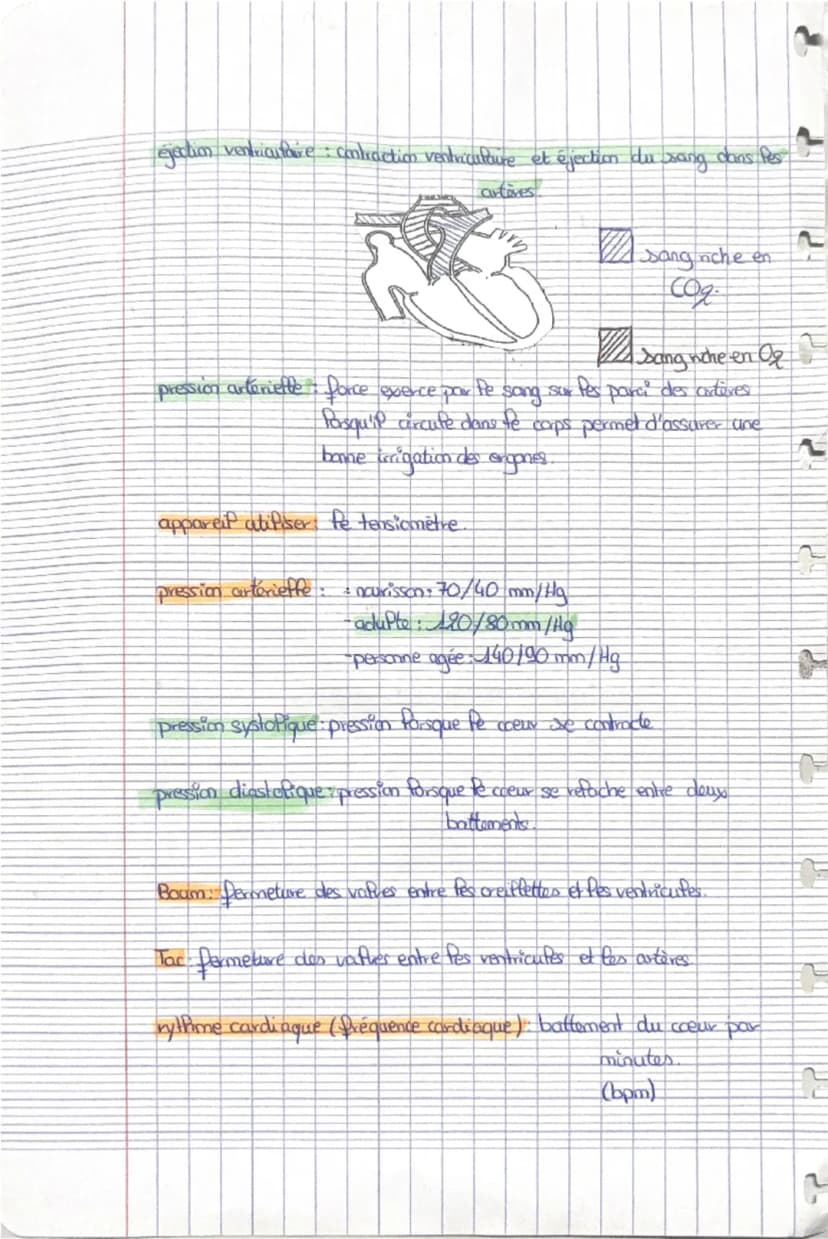 éjection ventriculaire : contraction ventriculaire et éjection du sang dans les
artères.
sang riche en
CO2.
sang riche en O2
pression artérielle : force exerce par le sang sur les paroi des artères
lorsqu'il circule dans le corps permet d'assurer une
bonne irrigation des organes.
appareil utiliser : le tensiomètre.
pression artérielle : - nourisson : 70/40 mm/Hg
- adulte : 120/80 mm/Hg
- personne agée : 140/90 mm/Hg
pression systolique : pression lorsque le cœur se contracte
pression diastolique : pression lorsque le cœur se relache entre deux
battements.
Boum : fermeture des valves entre les oreillettes et les ventricules.
Tac : fermeture des valves entre les ventricules et les artères
rythme cardiaque (fréquence cardiaque) : battement du cœur par
minutes.
(bpm)